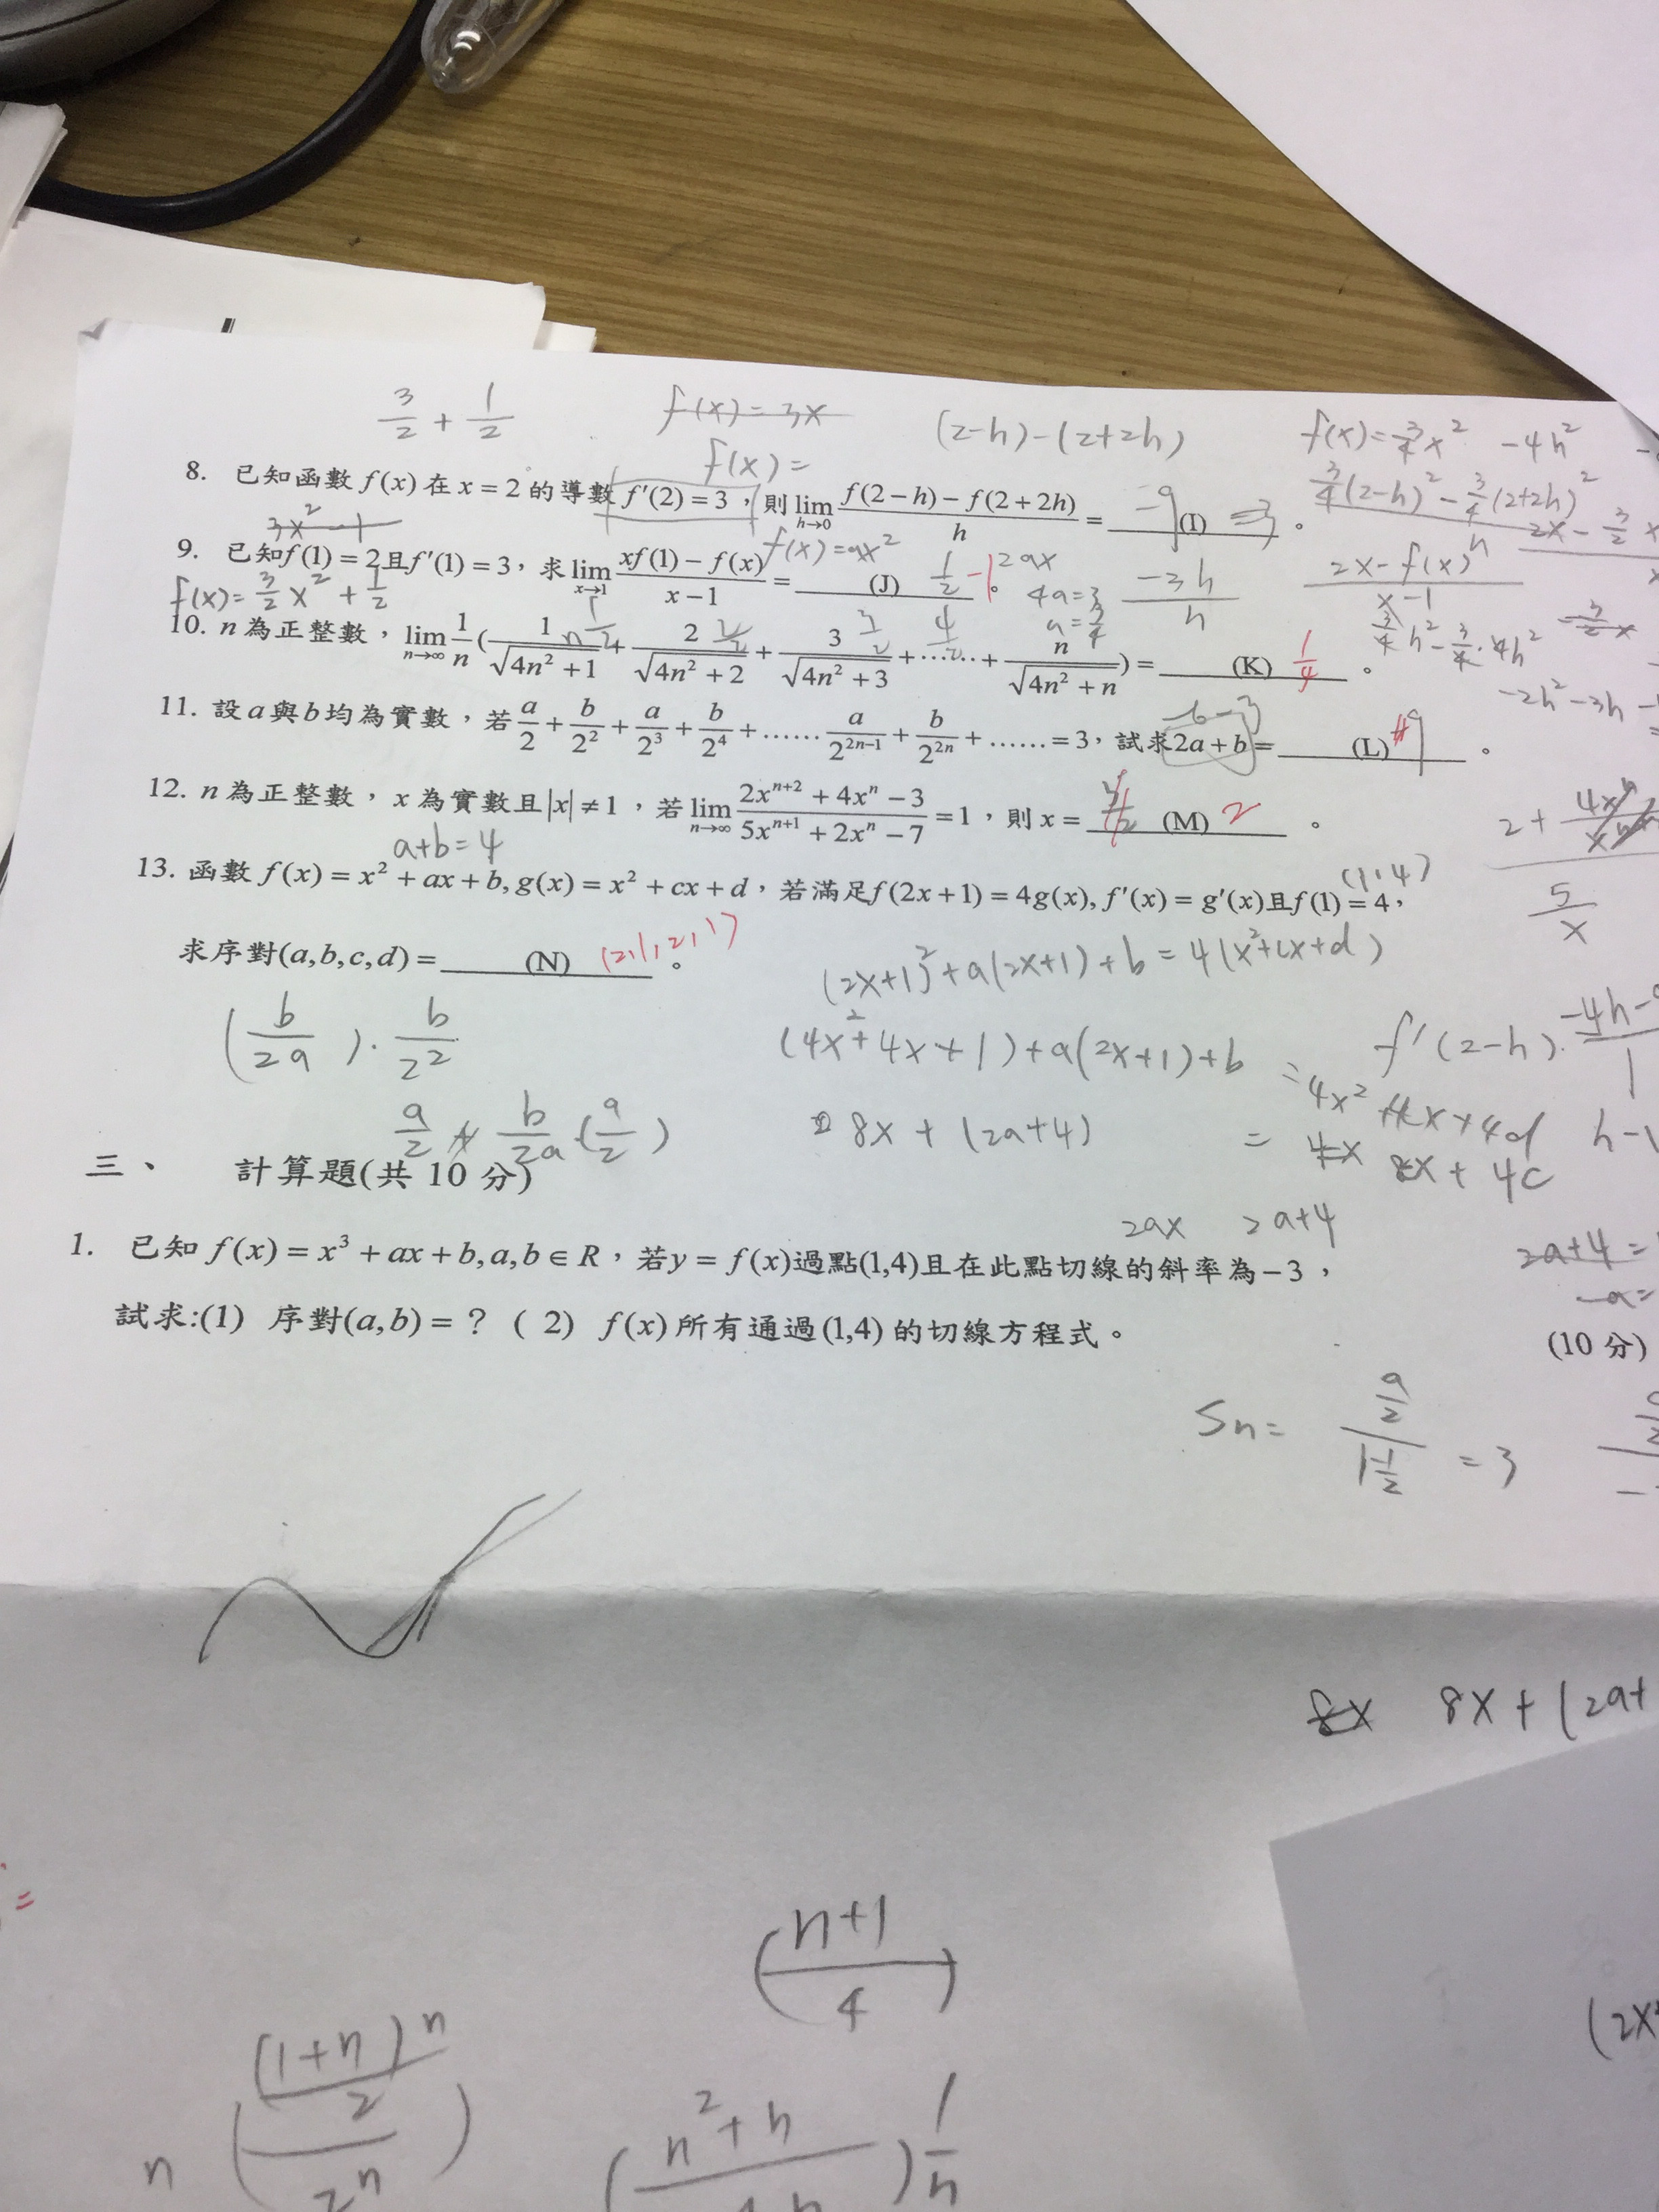 3/2 + 1/2
f(x)=3x
(2-h)-(2+2h)
f(x)=3/4x² -4h²
f(x)=
3/4(2-h)²-3/4(2+2h)²
8. 已知函數 f(x) 在 x = 2 的導數 f′(2) = 3，則 lim h→0 (f(2-h) - f(2+2h))/h = -9 (I) =3 。
3x²-1
f(x)=ax²
9. 已知f(1) = 2且f′(1) = 3，求 lim x→1 (xf(1) - f(x))/(x-1) = (J) 1/2 -1 。
2ax
4a=3
a=3/4
-3h/h
(2x-f(x))/(x-1)
f(x)=3/2x²+1/2
3/4h²-3/4·4h²
10. n 為正整數，lim n→∞ 1/n (1/√(4n²+1) + 2/√(4n²+2) + 3/√(4n²+3) + ⋯⋯ + n/√(4n²+n)) = (K) 1/4 。
-2h²-3h
11. 設 a 與 b 均為實數，若 a/2 + b/2² + a/2³ + b/2⁴ + …… a/2²ⁿ⁻¹ + b/2²ⁿ + …… = 3，試求2a + b = (L) 9 。
12. n 為正整數，x 為實數且|x| ≠ 1，若 lim n→∞ (2xⁿ⁺² + 4xⁿ - 3)/(5xⁿ⁺¹ + 2xⁿ - 7) = 1，則 x = (M) 2 。
a+b=4
(1,4)
13. 函數 f(x) = x² + ax + b, g(x) = x² + cx + d，若滿足f(2x+1) = 4g(x), f′(x) = g′(x)且f(1) = 4，
5/x
求序對(a,b,c,d) = (N) (2,1,2,1) 。
(2x+1)²+a(2x+1)+b=4(x²+cx+d)
(b/2a)·b/2²
(4x²+4x+1)+a(2x+1)+b =
f′(2-h)·
4x² +4cx+4d
a/2 b/2a·(a/2)
8x+(2a+4) = 8x+4c
三、 計算題(共 10 分)
2ax 2a+4
2a+4=
1. 已知 f(x) = x³ + ax + b, a,b ∈ R，若y = f(x)過點(1,4)且在此點切線的斜率為−3，
試求:(1) 序對(a,b) = ? ( 2) f(x) 所有通過(1,4) 的切線方程式。
(10 分)
Sn= (a/2)/(1-1/2) =3
8x 8x+(2a+
=
((n+1)/4)
(2x
n (((1+n)n/2)/2n)
(n²+n
)1/n